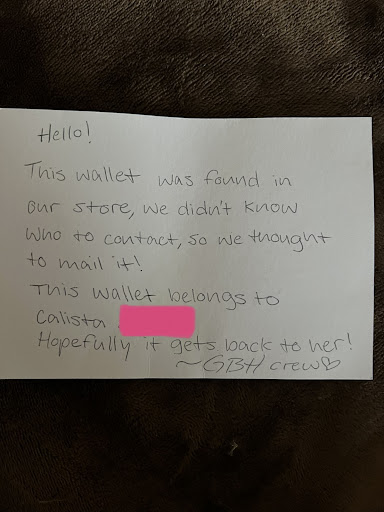 Hello!
This wallet was found in
our store, we didn't know
who to contact, so we thought
to mail it!
This wallet belongs to
Calista
Hopefully it gets back to her!
~GBH crew♡